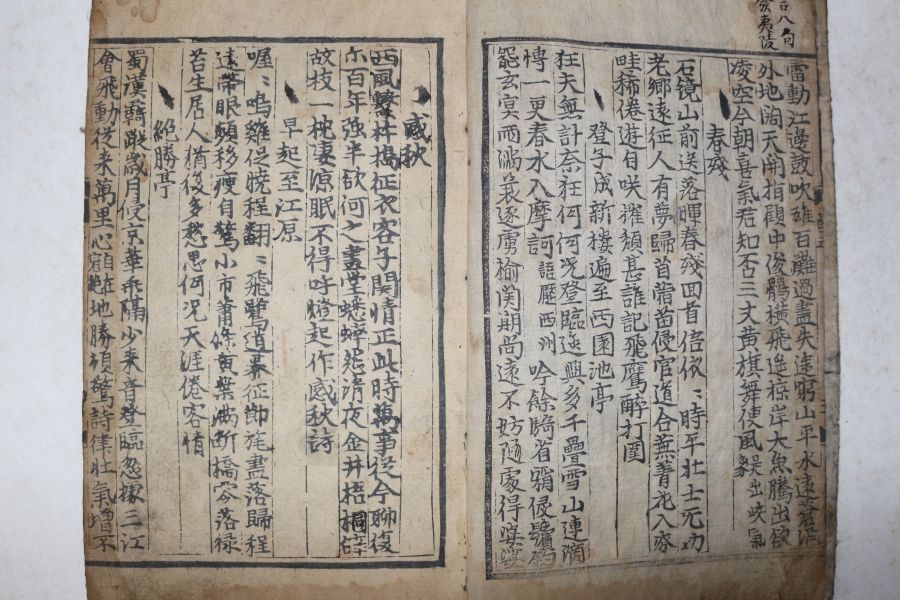 古八句
發夷陵
雷動江邊鼓吹雄百灘過盡失途窮山平水遠蒼茫
外地闊天開指顧中俊鶻橫飛遙掠岸大魚騰出欲
凌空今朝喜氣君知否三丈黄旗舞便風是出峽氣象
春殘
石镜山前送落暉春殘回首倍依〻時平壯士无功
老鄉遠征人有夢歸首蓿苗侵官道合蕪菁花入麥
畦稀倦遊自咲摧頹甚誰記飛鷹醉打圍
登子成新樓遍至西園池亭
狂夫無計奈狂何何況登臨逸興多千疊雪山連
愽一更春水入摩訶語歷西州吟餘騎省霜侵鬢
罷玄冥雨滿簑逐虜榆関期尚遠不妨隨處得婆娑
感秋
西風繁杵搗征衣客子関情正此時萬事從今聊復
尓百年强半欲何之畫堂蟋蟀怨清夜金井梧桐辝
故枝一枕凄凉眠不得呼燈起作感秋詩
早起至江原
喔〻鳴雞促曉程翻〻飛鷺道晨征節旄盡落歸程
遠帶眼頻移瘦自驚小市蕭條黃葉滿斷橋零落绿
苔生居人猶復多愁思何況天涯倦客情
絶勝亭
蜀漢羈蹤歲月侵京華乖隔少來音登臨忽據三江
會飛動從来萬里心自在地勝頓驚詩律壮氣增不